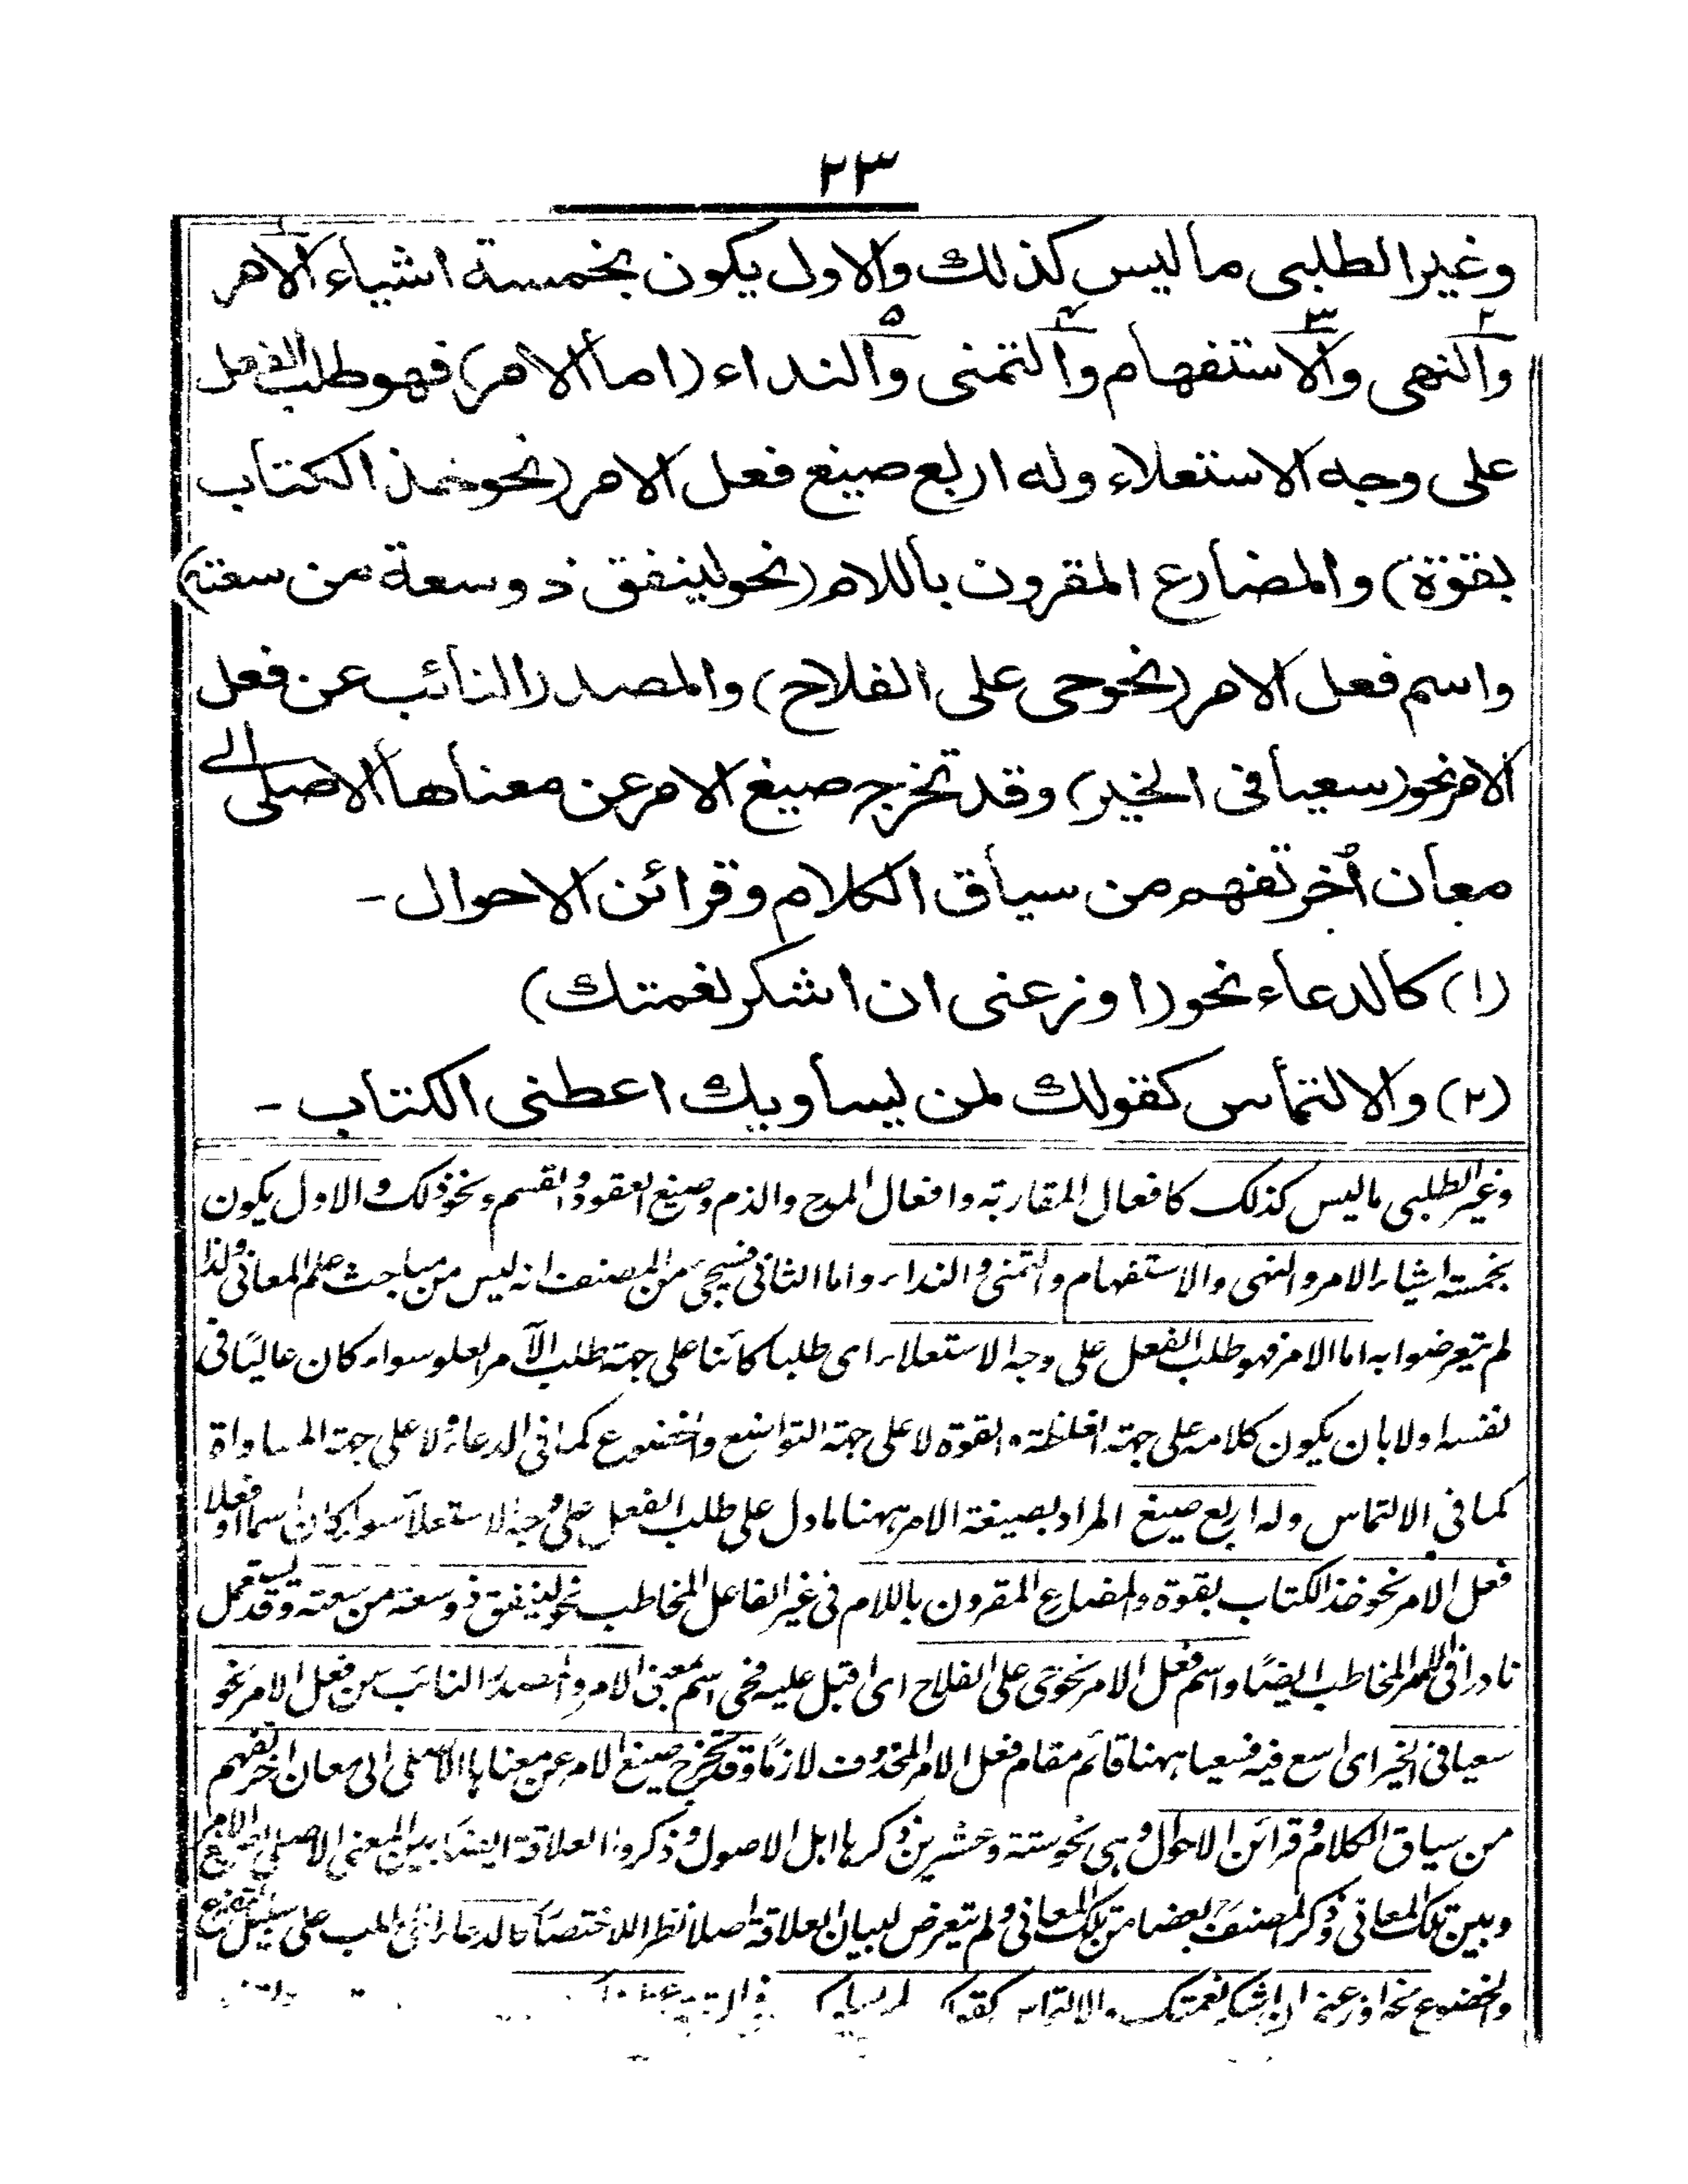 ٢٣
وغير الطلبى ماليس كذلك والاول يكون بخمسة اشياء الامر
١
٢ ٣ ٤ ٥
والنهى والاستفهام والتمنى والنداء (اما الامر) فهو طلب الفعل
على وجه الاستعلاء وله اربع صيغ فعل الامر (نحو خذ الكتاب
بقوة) والمضارع المقرون باللام (نحو لينفق ذو سعة من سعته)
واسم فعل الامر (نحو حى على الفلاح) والمصدر النائب عن فعل
الامر نحو (سعيا فى الخير) وقد تخرج صيغ الامر عن معناها الاصلى الى
معان أُخر تفهم من سياق الكلام وقرائن الاحوال -
(١) كالدعاء نحو (اوزعنى ان اشكر نعمتك)
(٢) والالتماس كقولك لمن يساويك اعطنى الكتاب -
وغير الطلبى ماليس كذلك كافعال المقاربة وافعال المدح والذم وصيغ العقود والقسم ونحو ذلك والاول يكون
بخمسة اشياء الامر والنهى والاستفهام والتمنى والنداء واما الثانى فسيجئ من المصنف انه ليس من مباحث علم المعانى ولذا
لم يتعرضوا به اما الامر فهو طلب الفعل على وجه الاستعلاء اى طلبا كائنا على جهة طلب الآمر العلو سواء كان عاليًا فى
نفسه او لا بان يكون كلامه على جهة الغلظة والقوة لا على جهة التواضع والخضوع كما فى الدعاء ولا على جهة المساواة
كما فى الالتماس وله اربع صيغ المراد بصيغة الامر ههنا مادل على طلب الفعل على وجه الاستعلاء سواء كان اسما او فعلا
فعل الامر نحو خذ الكتاب بقوة والمضارع المقرون باللام فى غير الفاعل المخاطب نحو لينفق ذو سعة من سعته وقد يستعمل
نادرا فى الامر المخاطب ايضًا واسم فعل الامر نحو حى على الفلاح اى اقبل عليه فحى اسم بمعنى الامر والمصدر النائب عن فعل الامر نحو
سعيا فى الخير اى اسع فيه فسعيا ههنا قائم مقام فعل الامر المحذوف لازمًا وقد تخرج صيغ الامر عن معناها الاصلى الى معان اخر تفهم
من سياق الكلام وقرائن الاحوال وهى نحو ستة وعشرين ذكرها اهل الاصول وذكروا العلاقة ايضًا بين المعنى الاصلى لصيغ الامر
وبين تلك المعانى وذكر المصنف بعضا من تلك المعانى ولم يتعرض لبيان العلاقة اصلا نظرا للاختصار كالدعاء اى الطلب على سبيل التضرع
والخضوع نحو اوزعنى ان اشكر نعمتك والالتماس كقولك لمن يساويك